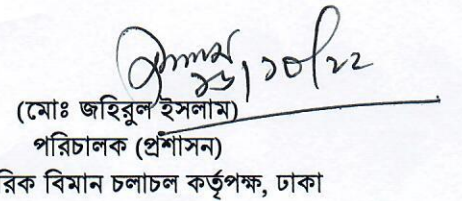 ১৬/১০/২২
(মোঃ জহিরুল ইসলাম)
পরিচালক (প্রশাসন)
রিক বিমান চলাচল কর্তৃপক্ষ, ঢাকা